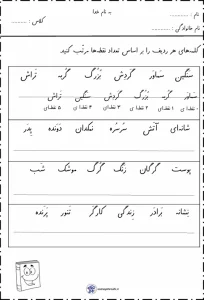 به نام خدا
نام : ..........
کلاس : ..........
نام خانوادگی : ..........
کلمه‌های هر ردیف را بر اساس تعداد نقطه‌ها مرتب کنید.
سنگین سماور گردش بزرگ گربه تراش
سماور گربه بزرگ گردش سنگین تراش
۰ نقطه‌ای ۱ نقطه‌ای ۲ نقطه‌ای ۳ نقطه‌ای ۴ نقطه‌ای ۵ نقطه‌ای
شانه‌ای آتش سرسره نمکدان دونده پدر
پوست گرگان رنگ گرگ موشک شب
نشانه برادر زندگی کارگر تنور پرنده